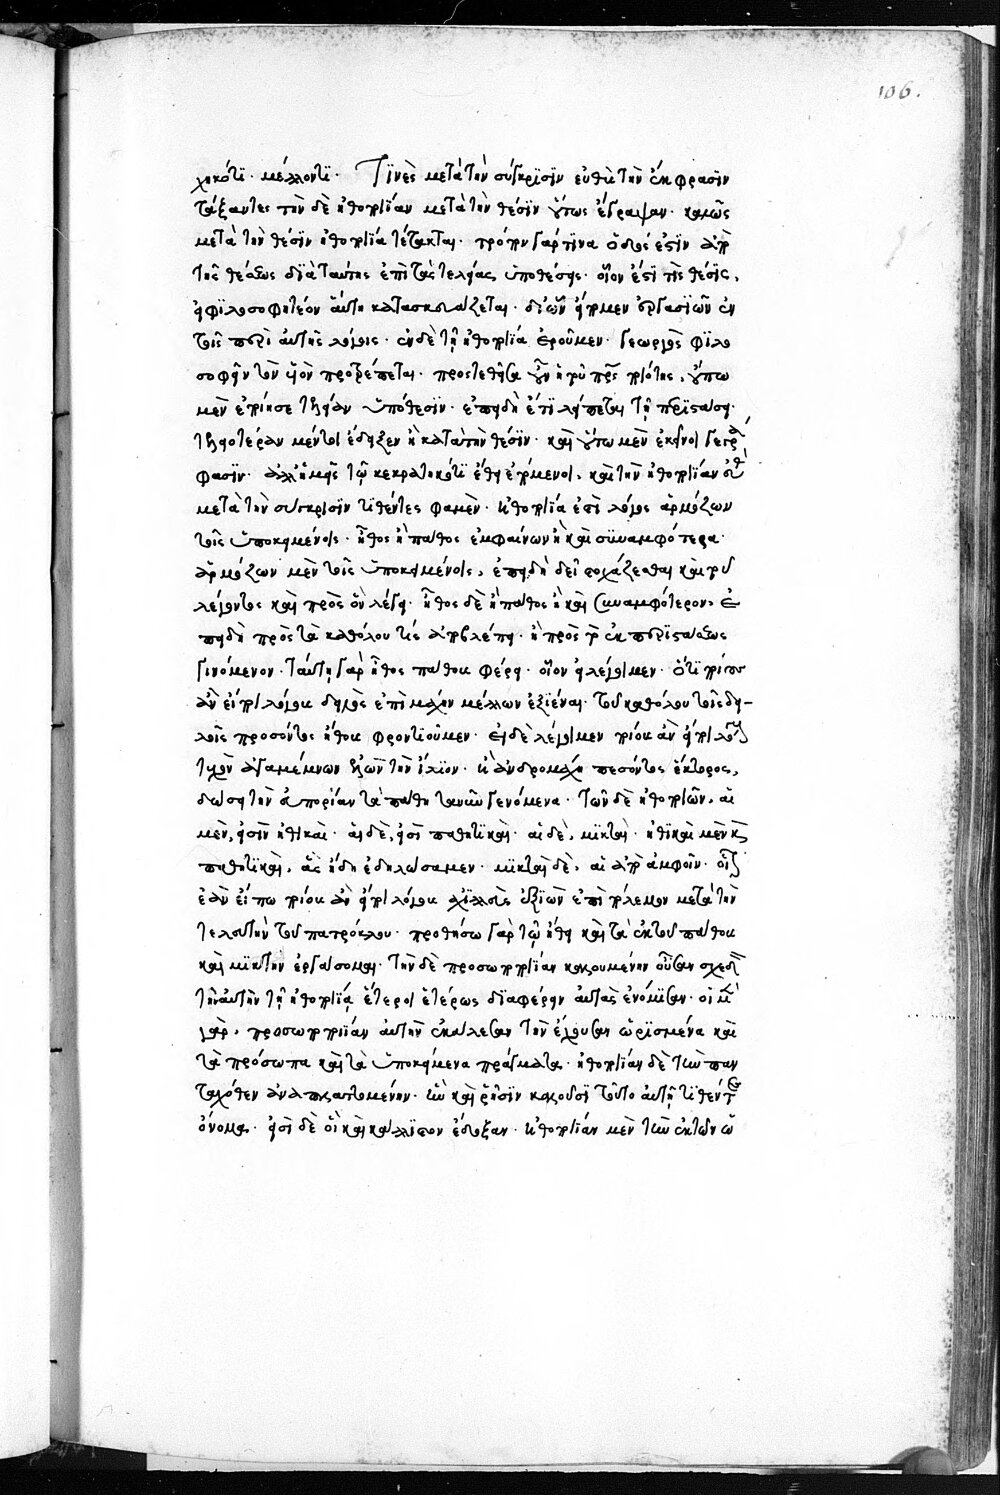 106.
χηκότι· μέλλοντι· Τινὲς μετὰ τὴν σύγκρισιν εὐθὺς τὴν ἔκφρασιν
τάξαντες τὴν δὲ ἠθοποιΐαν μετὰ τὴν θέσιν οὕτως ἔγραψαν· καλῶς
μετὰ τὴν θέσιν ἠθοποιΐα τέτακται· τρόπον γάρ τινα ὁδός ἐστιν ἀπὸ
τῆς θέσεως διὰ ταύτης ἐπὶ τὰς τελείας ὑποθέσεις· οἷον ἔστι τις θέσις,
εἰ φιλοσοφητέον αὕτη κατασκευάζεται· δι' ὧν εἴπομεν ἐργασιῶν ἐν
τοῖς περὶ αὐτῆς λόγοις· ἐν δὲ τῇ ἠθοποιΐα ἐροῦμεν· γεωργὸς φιλο
σοφεῖν τὸν υἱὸν προτρέπεται· προστεθεῖσα οὖν ἡ τοῦ προσώπου ποιότης, οὕπω
μὲν ἐποίησε τελείαν ὑπόθεσιν· ἐπειδὴ ἔτι λείπεται τῇ περιστάσει·
τελειοτέραν μέντοι ἔδειξεν ἢ κατὰ τὴν θέσιν· καὶ οὕτω μὲν ἐκεῖνοι γεγρά
φασιν· ἀλλ' ἡμεῖς τῷ κεκρατηκότι ἔθει ἑπόμενοι, καὶ τὴν ἠθοποιΐαν εὐθὺς
μετὰ τὴν σύγκρισιν τιθέντες φαμὲν· ἠθοποιΐα ἐστὶ λόγος ἁρμόζων
τοῖς ὑποκειμένοις· ἦθος ἢ πάθος ἐμφαίνων ἢ καὶ συναμφότερα·
ἁρμόζων μὲν τοῖς ὑποκειμένοις, ἐπειδὴ δεῖ στοχάζεσθαι καὶ τοῦ
λέγοντος καὶ πρὸς ὃν λέγει· ἦθος δὲ ἢ πάθος ἢ καὶ συναμφότερον, ἐ
πειδὴ πρὸς τὰ καθόλου τίς ἀποβλέπει· ἢ πρὸς τὸ ἐκ περιστάσεως
γινόμενον· ταύτῃ γὰρ ἦθος πάθους φέρει· οἷον εἰ λέγοιμεν· ὅτι ποίους
ἂν εἴποι λόγους δειλὸς ἐπὶ μάχην μέλλων ἐξιέναι· τοῦ καθόλου τοῖς δει-
λοῖς προσόντος ἤθους φροντιοῦμεν· εἰ δὲ λέγοιμεν ποίους ἂν εἴποι λόγους
ἀγαμέμνων ἑλὼν τὴν ἴλιον· ἢ ἀνδρομάχη πεσόντος ἕκτορος,
δώσει τὴν εὐπορίαν τὰ πάθη τανῦν γενόμενα· τῶν δὲ ἠθοποιϊῶν, αἱ
μὲν, εἰσὶν ἠθικαὶ· αἱ δὲ, εἰσὶ παθητικαὶ· αἱ δὲ, μικταὶ· ἠθικαὶ μὲν καὶ
παθητικαὶ, ἃς ἤδη ἐδηλώσαμεν· μικταὶ δὲ, αἱ ἀπὸ ἀμφοῖν· οἷον
ἐὰν εἴπω ποίους ἂν εἴποι λόγους ἀχιλλεὺς ἐξιὼν ἐπὶ πόλεμον μετὰ τὴν
τελευτὴν τοῦ πατρόκλου· προθήσω γὰρ τῷ ἤθει καὶ τὰ ἐκ τοῦ πάθους
καὶ μικτὴν ἐργάσομαι· τὴν δὲ προσωποποιΐαν κακουμένην οὖσαν σχεδὸν
τὴν αὐτὴν τῇ ἠθοποιΐᾳ ἕτεροι ἑτέρως διαφέρειν αὐτὰς ἐνόμισαν· οἱ μὲν
γὰρ, προσωποποιΐαν αὐτὴν ἐκάλεσαν τὴν ἔχουσαν ὡρισμένα καὶ
τὰ πρόσωπα καὶ τὰ ὑποκείμενα πράγματα· ἠθοποιΐαν δὲ τὴν παν
ταχόθεν ἀναπλαττομένην· ἣν καὶ ῥῆσιν καλοῦσι τοῦτο αὐτῇ τιθέντες
ὄνομα· εἰσὶ δὲ οἳ καὶ κάλλιστον ἔδοξαν· ἠθοποιΐαν μὲν τὴν ἐκ τῶν ὄ